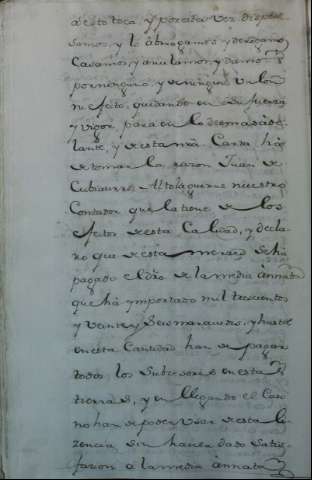 á esto toca, y por esta vez dispen
samos, y lo abrogamos y derogamos
Casamos, y anulamos, y damos
por ninguno, y de ningun valor
ni efecto, quedando en su fuerza
y vigor, para en lo demas ade
lante, y de esta nra Carta, há
de tomar la razon Juan de
Cubiaurre Altolaguirre nuestro
Contador que la tiene de los
efectos de esta Calidad, y decla
ro que de esta merced se há
pagado el dro de la media annata
que há ymportado mil trescientos
y veinte y Seis maravedis, y hasta
en esta Cantidad han de pagar
todos los Subcesores en esta
tierras, y en llegando el Caso
no han de poder Usar de esta li
zencia sin haver dado Satis
facion á la media annata